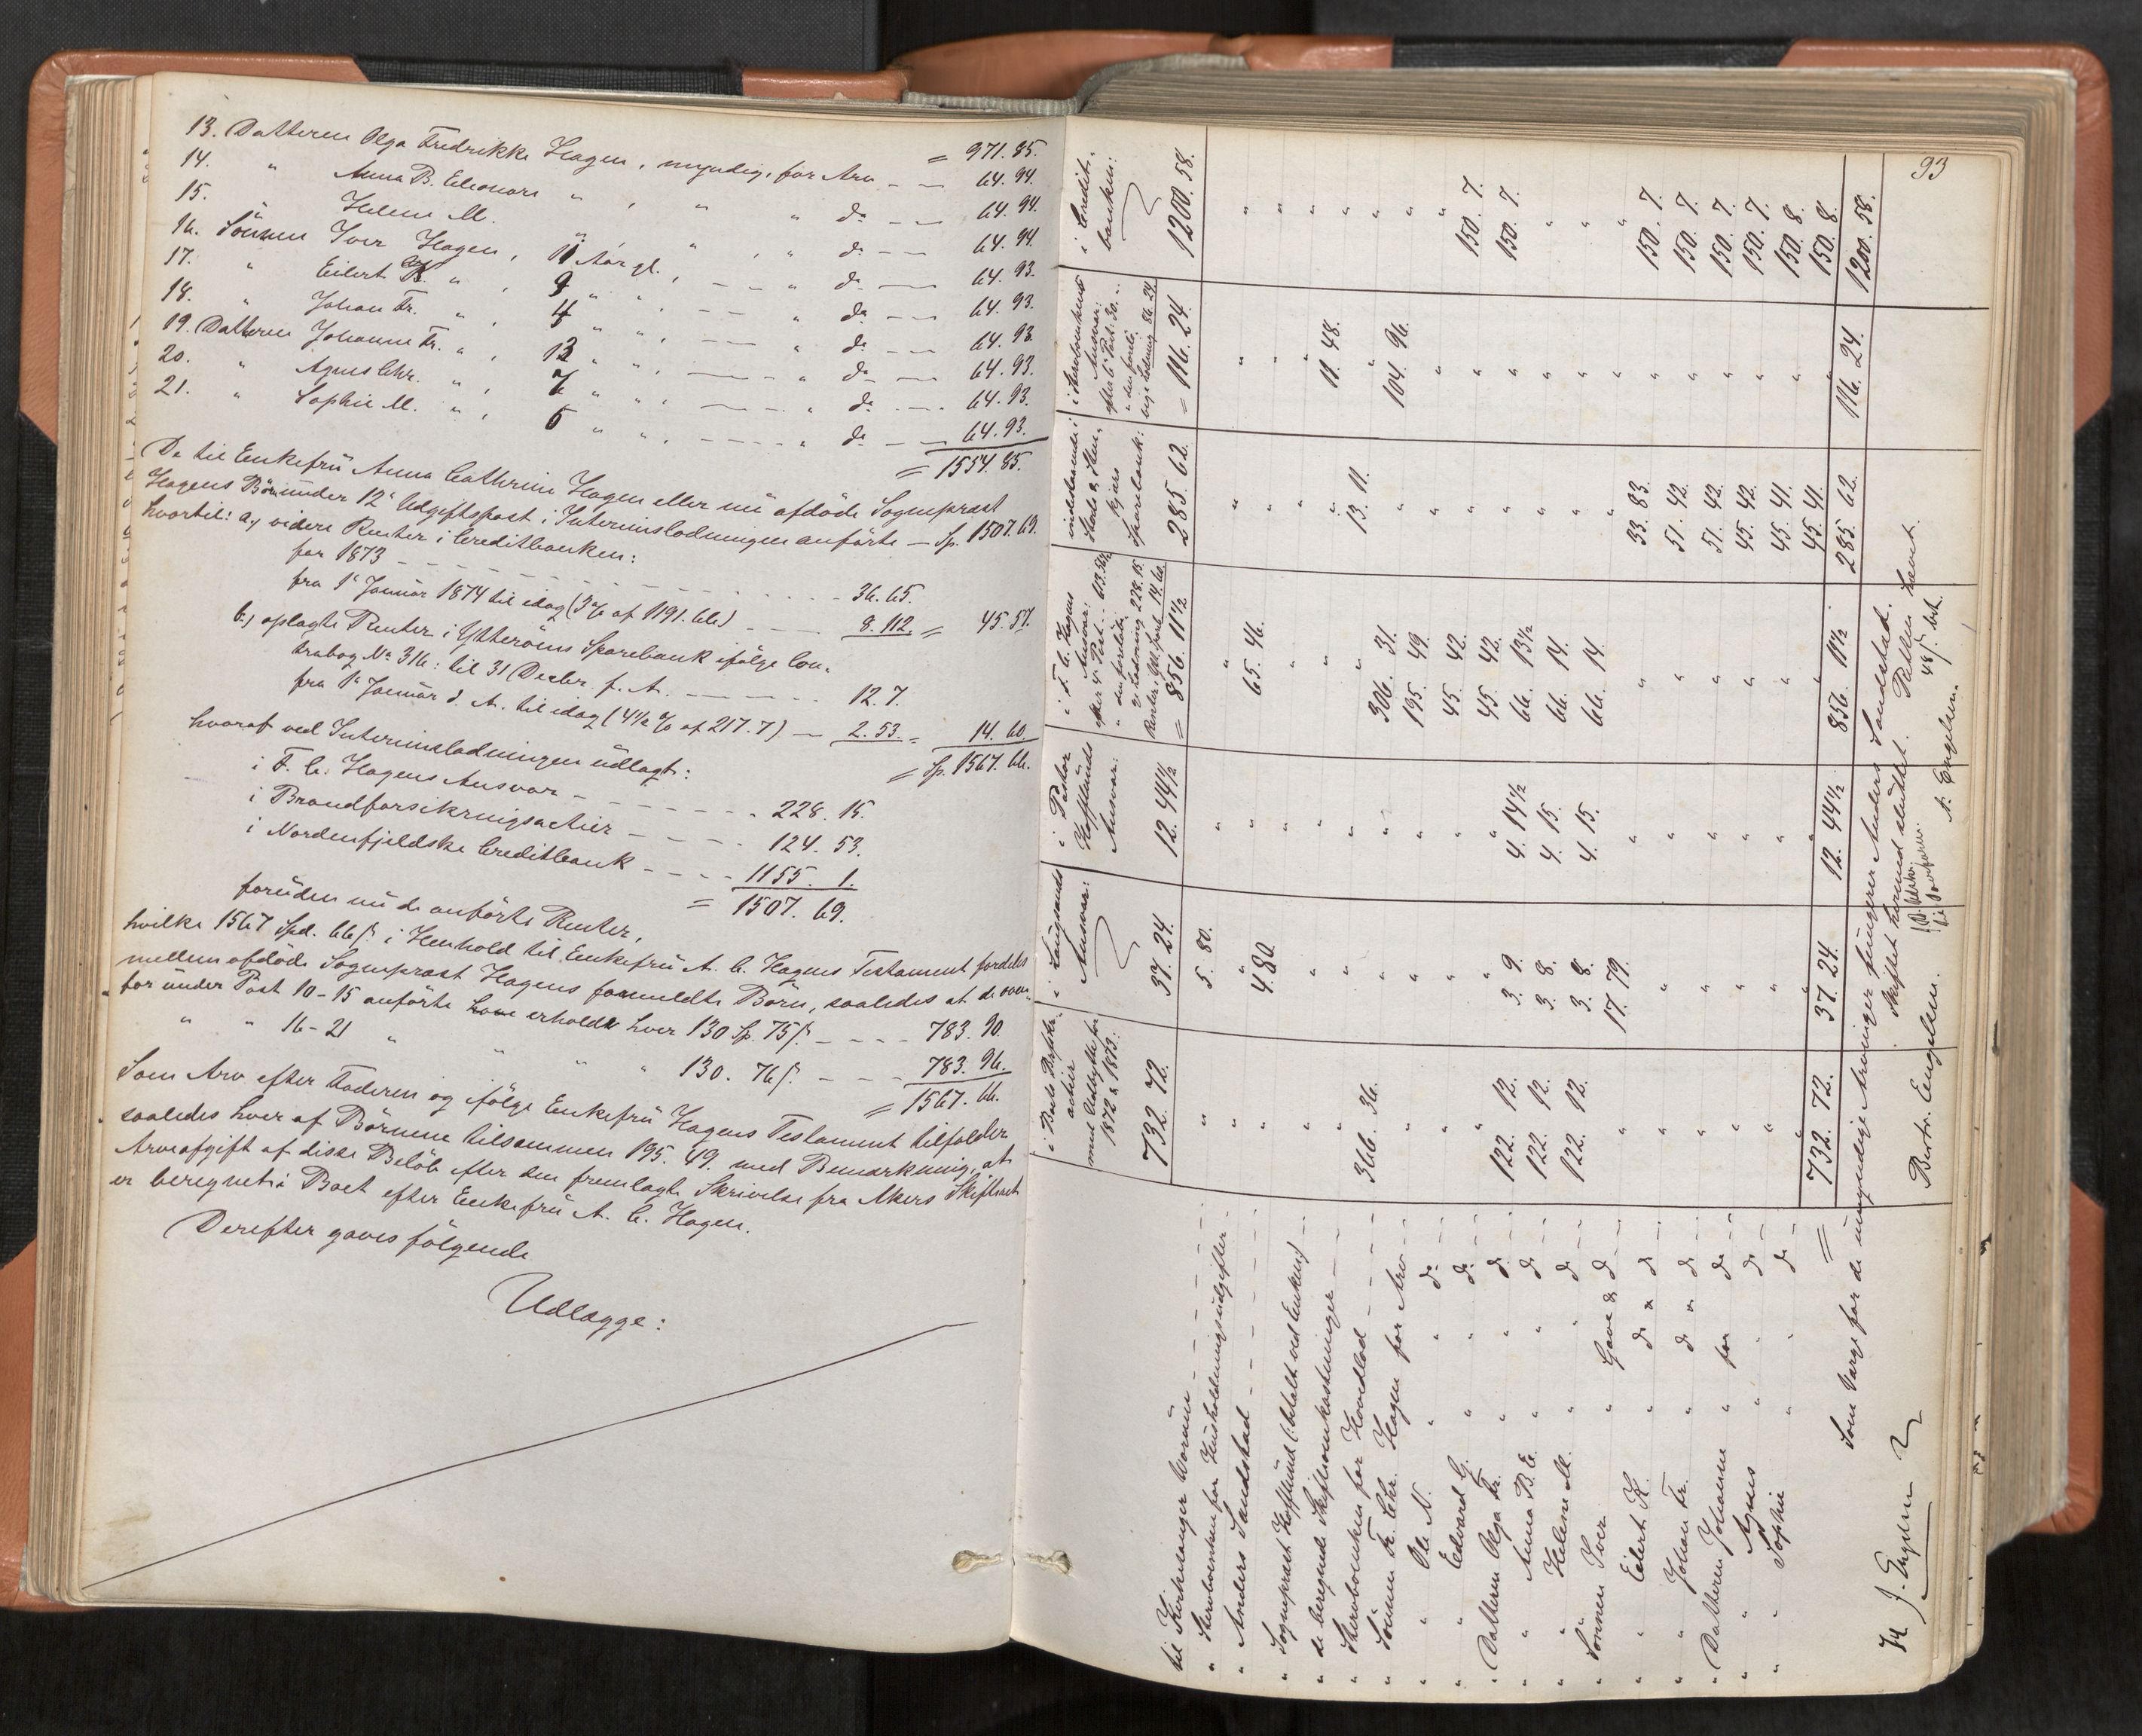 13. Datteren Olga Fredrikke Hagen, myndig, for Arv — — 64. 94.
= 971. 85.
14. " Anna B. Eleonore " , " " do — — 64. 94.
15. " Helene M. " , " " do — — 64. 94.
16. Sönnen Iver Hagen, 11 Aar gl. , " do — — 64. 93.
17. " Eilert K. " , 9 " " , — — " do — — 64. 93.
18. " Johan Fr. " , 4 " " , — — " do — — 64. 93.
19. Datteren Johanne Fr. " , 13 " " , — — " do — — 64. 93.
20. " Agnes Chr. " , 7 " " , — — " do — — 64. 93.
21. " Sophie M. " , 5 " " , — — " do — — 64. 93.
= 1554. 85.
De til Enkefrü Anna Cathrine Hagen eller nü afdöde Sogneprost
Hagens Börn ünder 12te Udgiftspost i Interimslodningen anförte — Sp. 1507. 69.
hvortil: a., videre Renter i Creditbanken:
for 1873 - - - - - - 36. 65.
fra 1ste Januar 1874 til idag (3% af 1191. 66.) — 8. 112 = 45. 57.
b., oplagte Renter i Ytteröens Sparebank ifölge Con-
trabog No 316: til 31 Decbr. f. A. — — — 12. 7.
fra 1ste Januar d. A. til idag (4 1/2 % af 217. 7) — 2. 53. = 14. 60.
= Sp. 1567. 66.
hvoraf ved Interimslodningen üdlagt:
i F. C. Hagens Ansvar - - - - - 228. 15.
i Brandforsikringsactier - - - - 124. 53.
i Nordenfjeldske Creditbank - - - - 1155. 1.
= 1507. 69.
foruden nü de anförte Renter,
hvilke 1567 Spd. 66 ß. i Henhold til Enkefrü A. C. Hagens Testament fordeles
mellem afdöde Sogneprost Hagens formeldte Börn, saaledes at de oven-
for ünder Post 10-15 anförte erholde hver 130 Sp. 75 ß. — - - - 783. 90.
" " 16-21 " " " " 130. 76 ß. - - - 783. 96.
= 1567. 66.
Som Arv efter Faderen og ifölge Enkefrü Hagens Testament tilfalder
saaledes hver af Börnene tilsammen 195. 49. med Bemærkning, at
Arveafgift af disse Belöb efter den fremlagte Skrivelse fra Akers Skifteret
er beregnet i Boet efter Enkefrü A. C. Hagen.
Derefter gaves fölgende
Udlægge:
93
i Bods Assük.
actier
med Udbytte for
1872 & 1873.
i Langsands
Ansvar:
i Pastor
Hofflünds
Ansvar:
i F. C. Hagens
Ansvar:
Renter i Ytt. Sparb. 14. 60.
indestaaende i
Stods & Sten-
kjærs
Sparebank:
i Stervboenkens
Ansvar:
i Credit-
banken:
732. 72. 37. 24. 12. 44 1/2 = 856. 11 1/2 285. 62. = 116. 24. 1200. 58.
til Kirkesanger Wormün — - - - " 5. 80. " " " " "
" Stervboenken for Hüsholdningsüdgifter - " " " 65. 46. " " "
" Anders Sandstad - - - - " 4. 80. " " " " "
" Sogneprest Hofflünd (betalt ved Enken) — " " " " " " "
" de beregnede Skifteomkostninger — - - " " " " 13. 11. 11. 48. "
" Stervboenken for Hovedlod — - - - 366. 36. " " 306. 31. " 104. 96. "
" Sönnen Fr. Chr. Hagen for Arv - - " " " 195. 49. " " "
" " Ole N. " " do - - " " " 45. 42. " " 150. 7.
" " Edvard G. " " do - - " " " 45. 42. " " 150. 7.
" Datteren Olga Fr. " " do - - 122. 12. 3. 9. 4. 14 1/2 66. 13 1/2 " " "
" " Anna B. E. " " do - - 122. 12. 3. 8. 4. 15. 66. 14. " " "
" " Helene M. " " do - - 122. 12. 3. 8. 4. 15. 66. 14. " " "
" Sönnen Iver " Gave & do - - " 17. 79. " " 33. 83. " 150. 7.
" " Eilert K. " do & do - - " " " " 51. 42. " 150. 7.
" " Johan Fr. " do & do - - " " " " 51. 42. " 150. 7.
" Datteren Johanne " for do - - " " " " 45. 42. " 150. 7.
" " Agnes " " do - - " " " " 45. 41. " 150. 8.
" " Sophie " " do - - " " " " 45. 41. " 150. 8.
= 732. 72. 37. 24. 12. 44 1/2 856. 11 1/2 285. 62. 116. 24. 1200. 58.
Som Værge for de ümyndige Arvinger füngerer Anders Sandstad.
Skiftet hermed slüttet. Retten hævet.
48 ß. bet.
J. Engelsen Berntr. Engelsen. A. Engelsen.